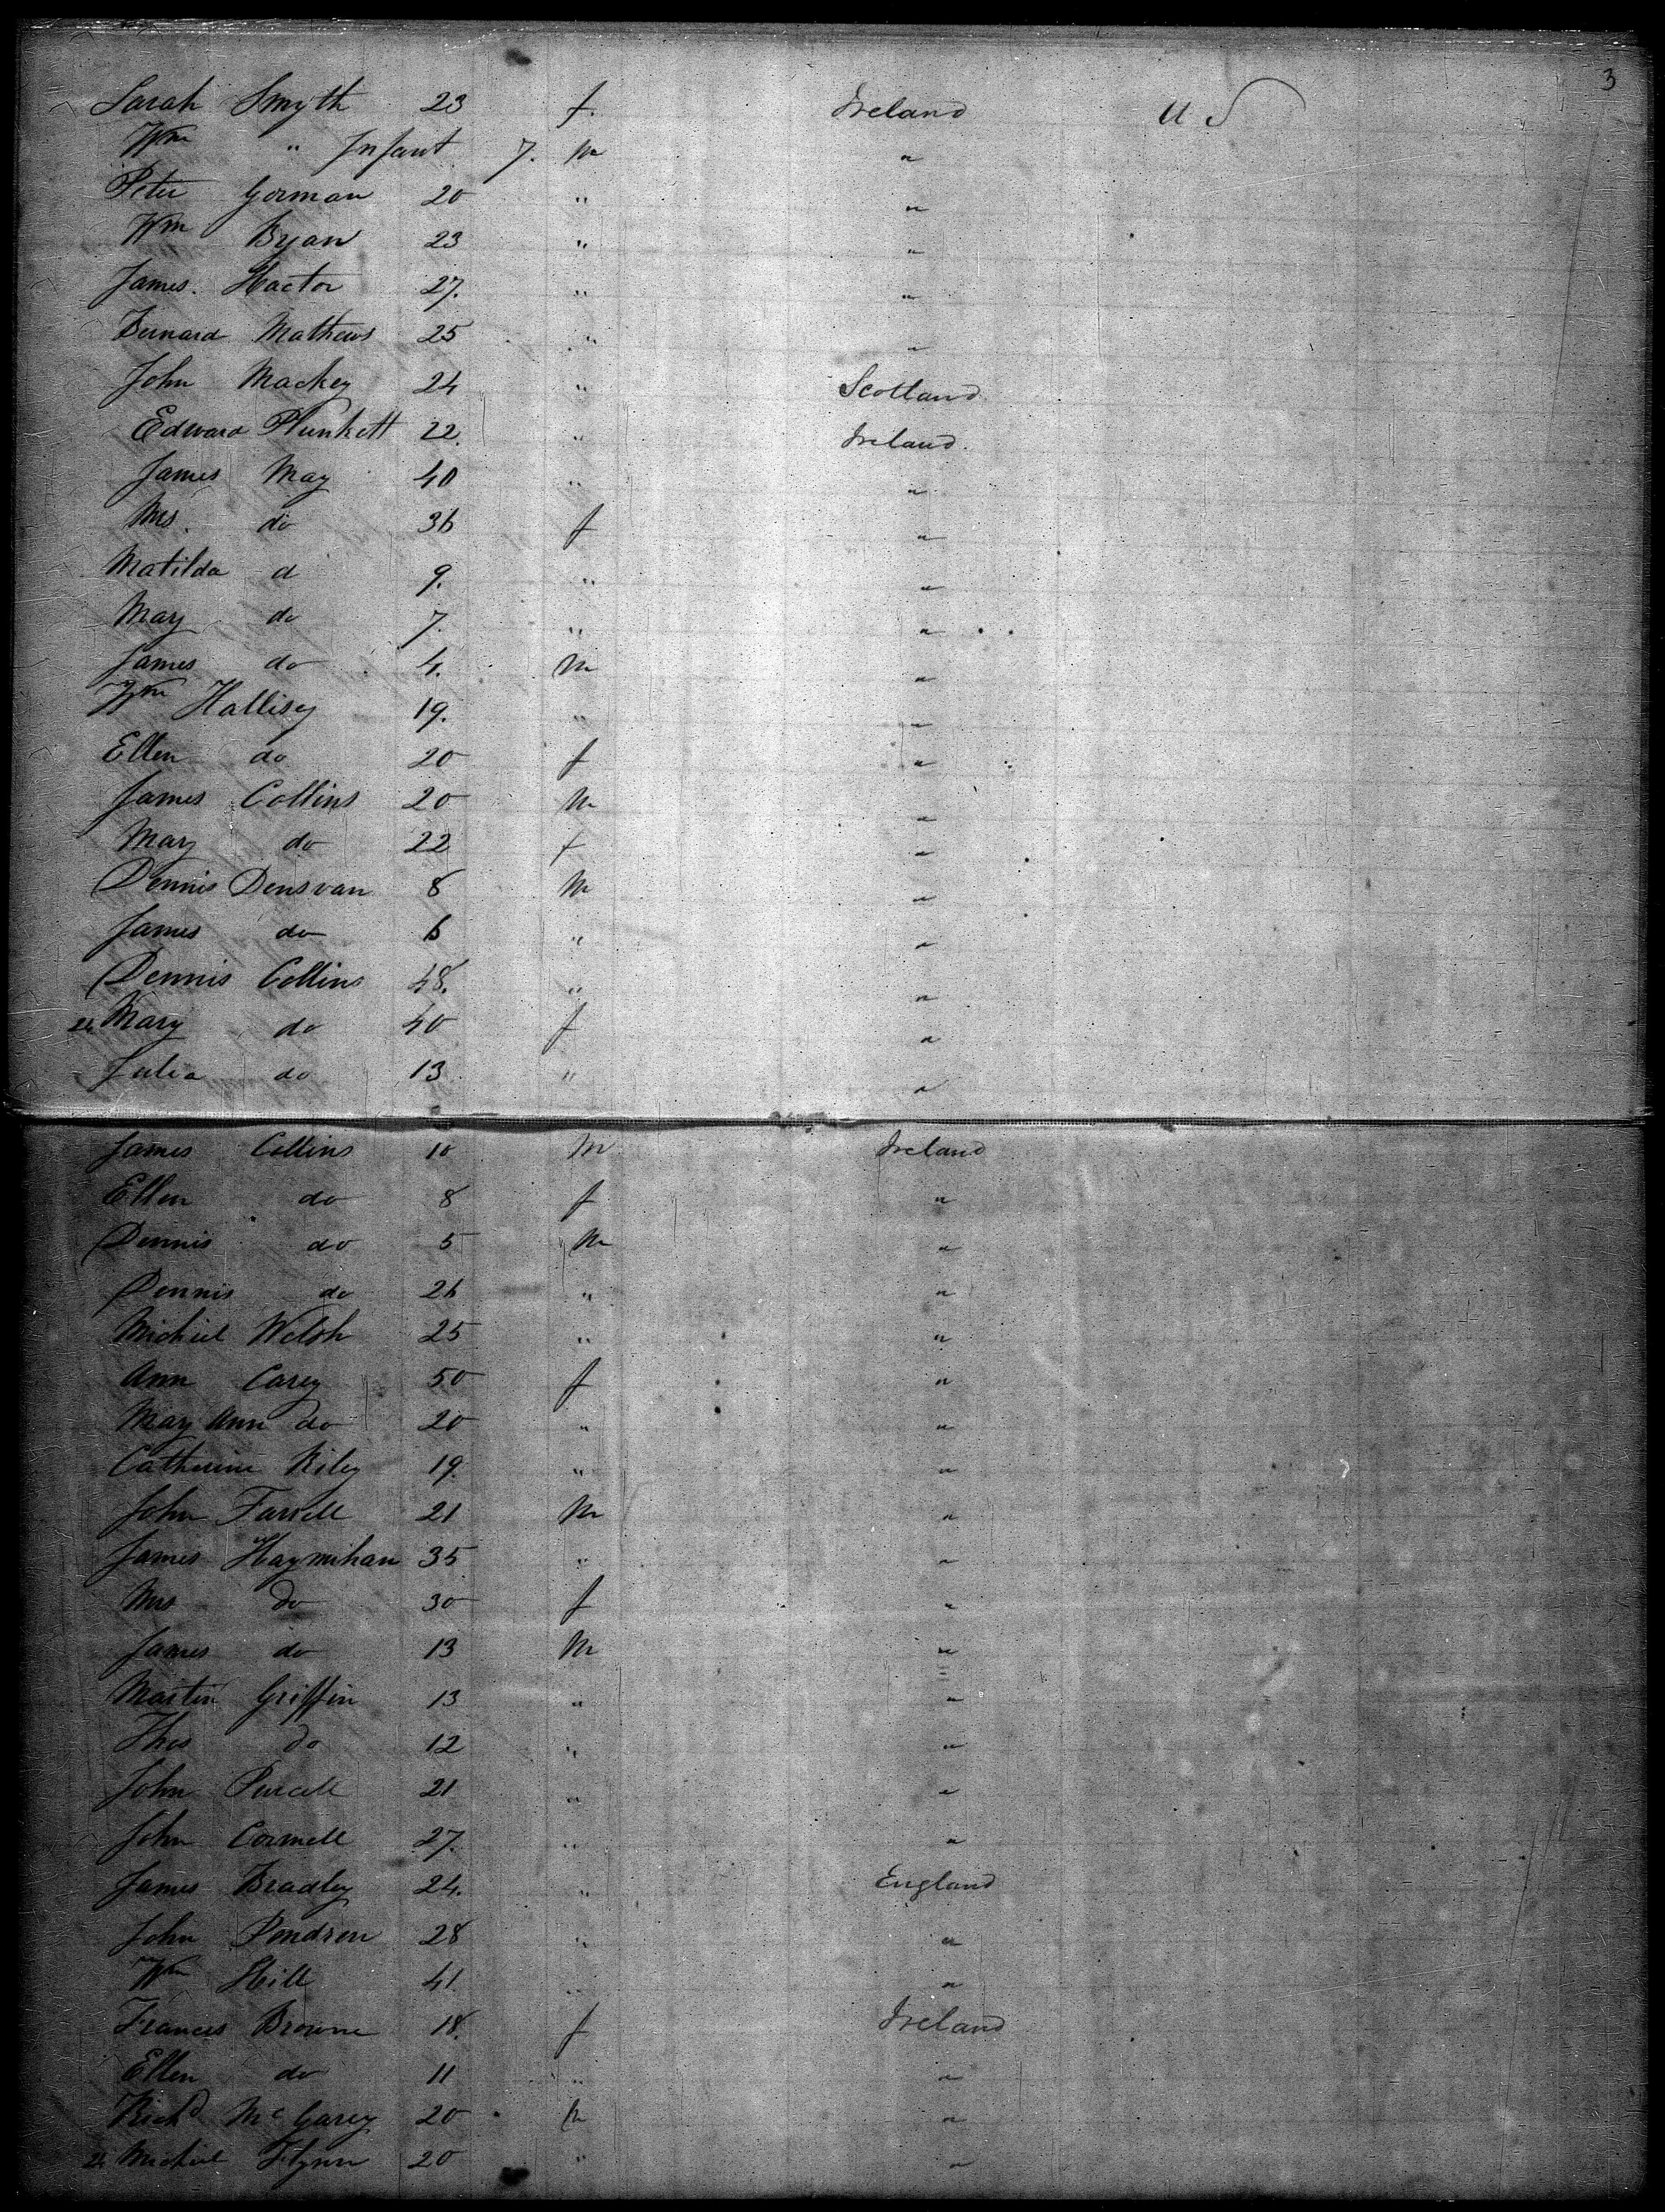 3
Sarah Smyth 23 f. Ireland U S
Wm " Infant 7. m "
Peter Gorman 20 " "
Wm Byan 23 " "
James. Hactor 27. " "
Bernard Mathews 25 " "
John Mackey 24 " Scotland
Edward Plunkett 22. " Ireland.
James May 40 " "
Mrs. do 36 f "
Matilda d 9. " "
Mary do 7. " "
James do 4. m "
Wm Hallisey 19. " "
Ellen do 20 f "
James Collins 20 m "
Mary do 22 f "
Dennis Donovan 8 m "
James do 6 " "
Dennis Collins 48. " "
Mary do 40 f "
Julia do 13 " "
James Collins 10 m Ireland
Ellen do 8 f "
Dennis do 5 m "
Dennis do 26 " "
Michiel Welsh 25 " "
Ann Carey 50 f "
Mary Ann do 20 " "
Catherine Riley 19. " "
John Farrell 21 m "
James Haymihan 35 " "
Mrs do 30 f "
James do 13 m "
Martin Griffin 13 " "
Thos do 12 " "
John Purcell 21 " "
John Cormell 27. " "
James Bradley 24. " England
John Pendren 28 " "
Wm Hill 41 " "
Frances Browne 18. f Ireland
Ellen do 11 " "
Richd McCarey 20 m "
Michiel Flynn 20 " "